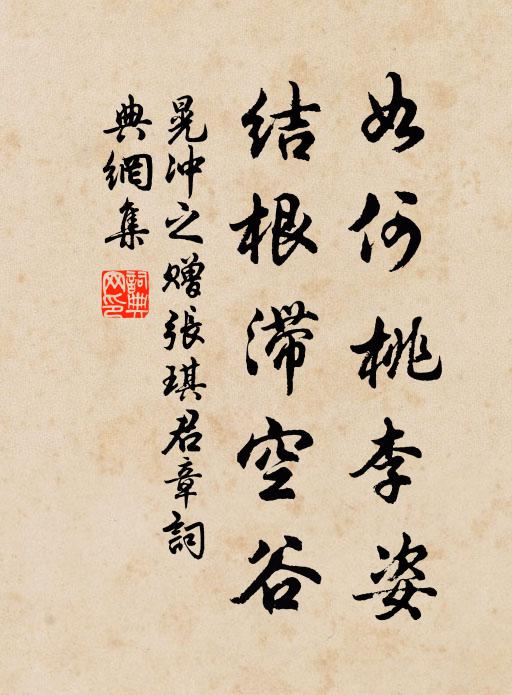 如何桃李姿
结根滞空谷
晁冲之赠張琪君章詞
典網集
詞典网印